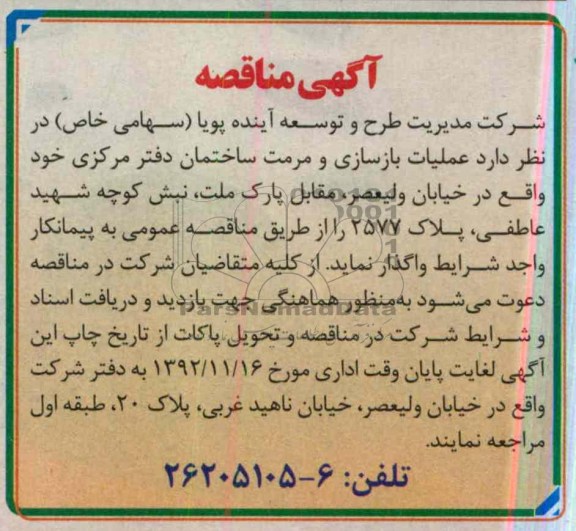 آگهی مناقصه
شرکت مدیریت طرح و توسعه آینده پویا (سهامی خاص) در
نظر دارد عملیات بازسازی و مرمت ساختمان دفتر مرکزی خود
واقع در خیابان ولیعصر، مقابل پارک ملت، نبش کوچه شهید
عاطفی، پلاک ۲۵۷۷ را از طریق مناقصه عمومی به پیمانکار
واجد شرایط واگذار نماید. از کلیه متقاضیان شرکت در مناقصه
دعوت می‌شود به‌منظور هماهنگی جهت بازدید و دریافت اسناد
و شرایط شرکت در مناقصه و تحویل پاکات از تاریخ چاپ این
آگهی لغایت پایان وقت اداری مورخ ۱۳۹۲/۱۱/۱۶ به دفتر شرکت
واقع در خیابان ولیعصر، خیابان ناهید غربی، پلاک ۲۰، طبقه اول
مراجعه نمایند.
تلفن: ۶-۲۶۲۰۵۱۰۵
ParsNamadData